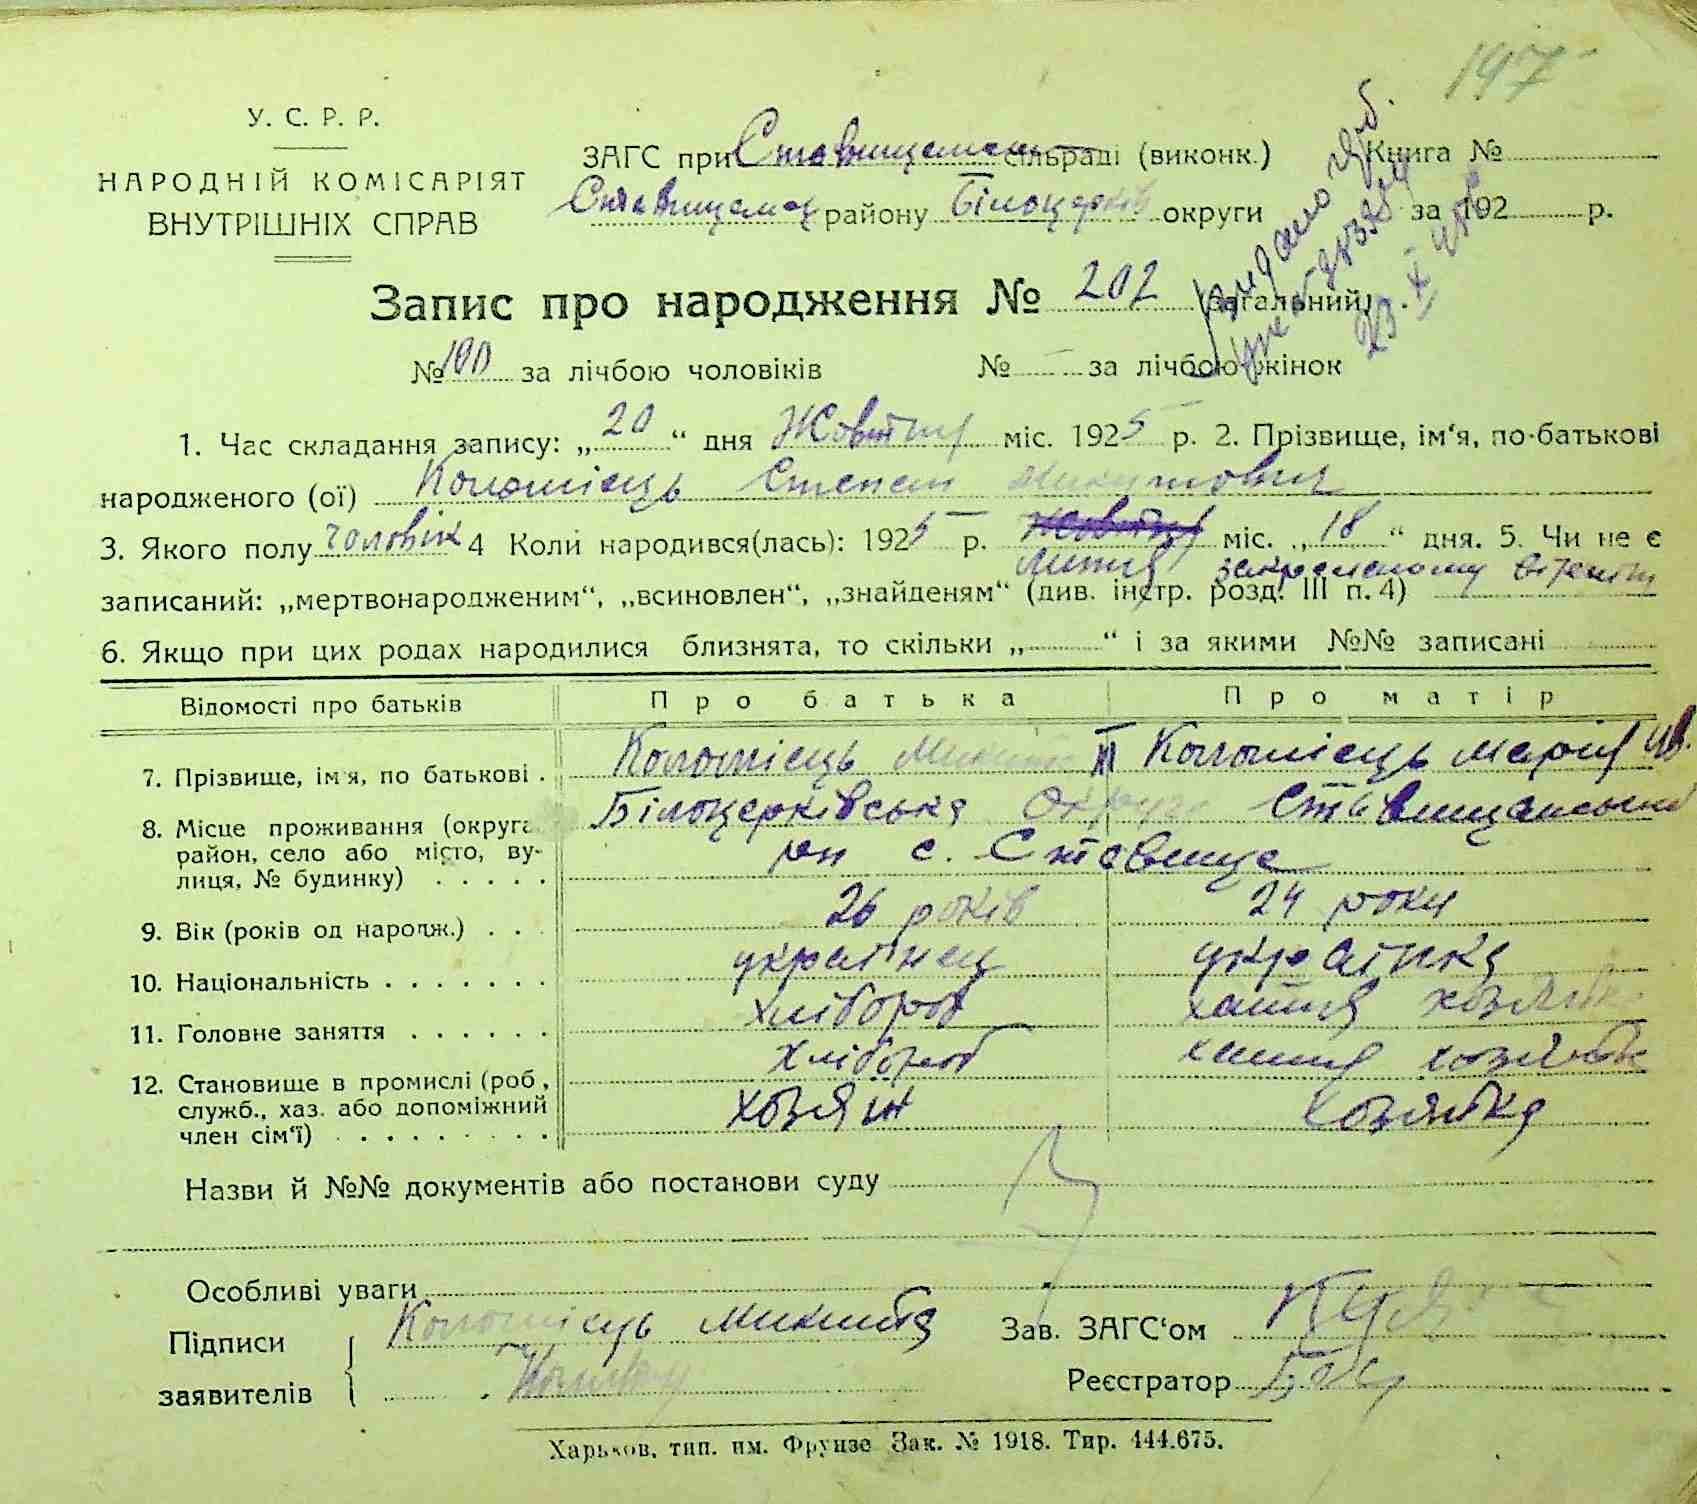 197
У. С. Р. Р.
НАРОДНІЙ КОМІСАРІЯТ
ВНУТРІШНІХ СПРАВ
ЗАГС при Ставищанськ сільраді (виконк.) Книга №
Ставищанськ району Білоцерків округи за 192 р.
Видано
23.X
Запис про народження № 202 (загальний)
№ 100 за лічбою чоловіків № — за лічбою жінок
1. Час складання запису: „20“ дня Жовтня міс. 1925 р. 2. Прізвище, ім‘я, по-батькові
народженого (ої) Коломієць Степан Микитович
3. Якого полу чоловік 4 Коли народився(лась): 1925 р. Жовтня міс. „18“ дня. 5. Чи не є
Липня закресленому вірить
записаний: „мертвонародженим“, „всиновлен“, „знайденям“ (див. інстр. розд. III п. 4)
6. Якщо при цих родах народилися близнята, то скільки „ “ і за якими №№ записані
Відомості про батьків Про батька Про матір
7. Прізвище, ім‘я, по батькові . Коломієць Микита Коломієць Марія Ів.
8. Місце проживання (округа, Білоцерківська Округа Ставищанський
район, село або місто, ву- рн с. Ставище
лиця, № будинку) . . . . .
9. Вік (років од народж.) . . . 26 років 24 роки
10. Національність . . . . . . . українец українка
11. Головне заняття . . . . . . хлібороб хатня хозяйка
хлібороб хатня хозяйка
12. Становище в промислі (роб., хозяїн хозяйка
служб., хаз. або допоміжний
член сім‘ї) . . . . . . . . .
Назви й №№ документів або постанови суду
Особливі уваги
Підписи Коломієць Микита Зав. ЗАГС‘ом
заявителів Реєстратор
Харьков, тип. им. Фрунзе Зак. № 1918. Тир. 444.675.